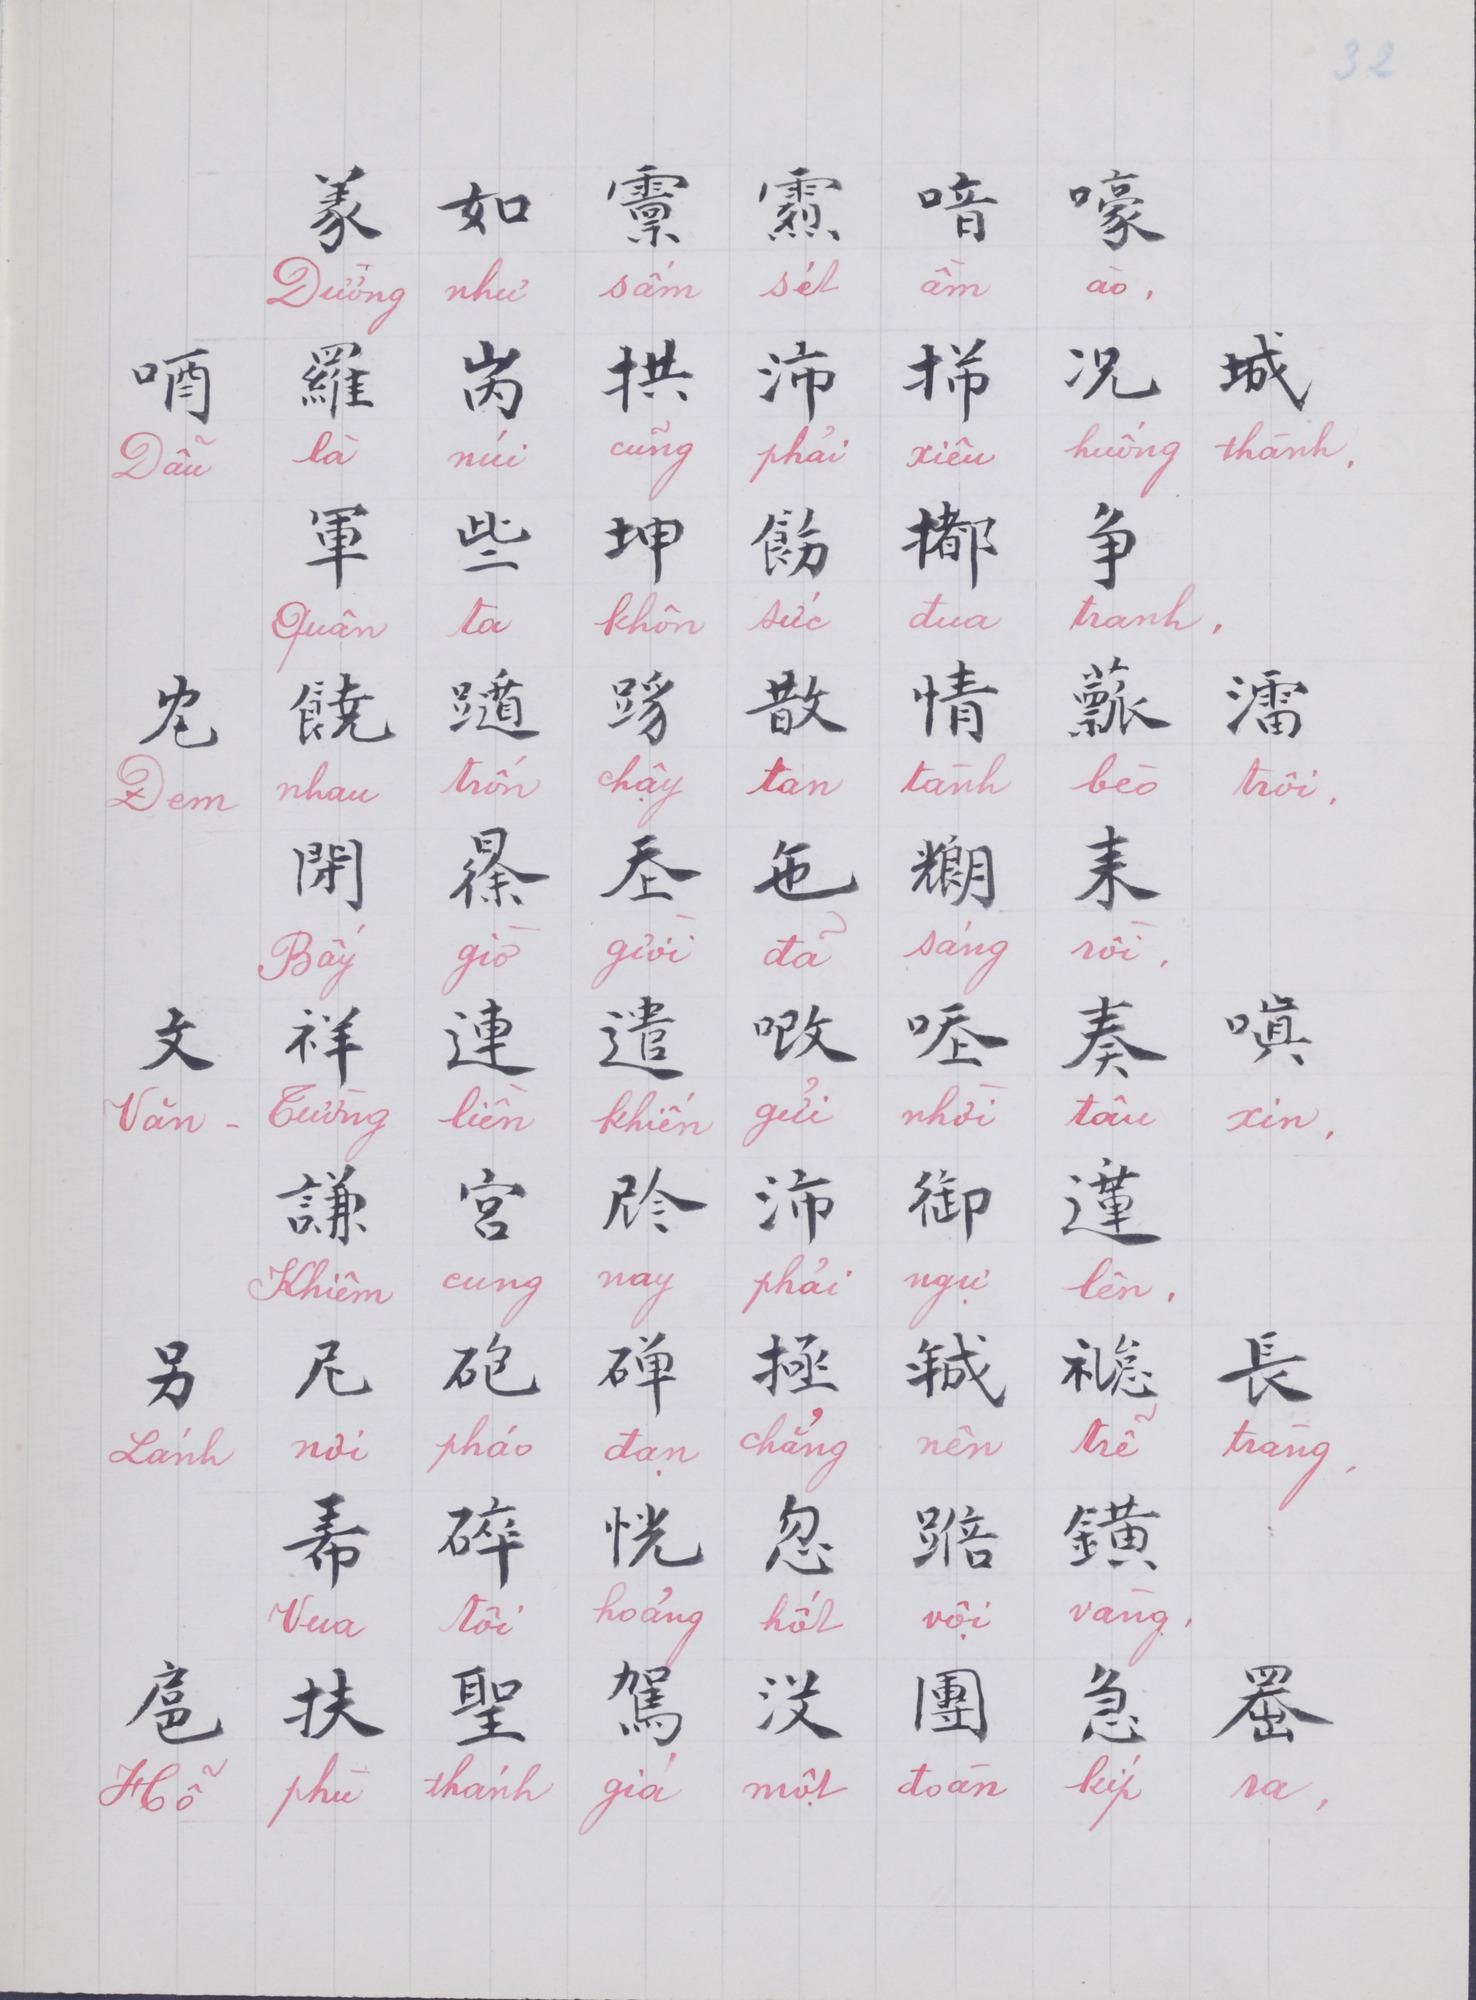 32
羕 如 𩆪 𩆷 喑 嚎
Dường như sấm sét ầm ào,
唒 羅 𡶀 拱 沛 㧊 况 城
Dẫu là núi cũng phải xiêu huống thành,
軍 些 坤 飭 㩫 争
Quân ta khôn sức đua tranh,
𠑈 饒 𨅹 𨅮 散 情 藨 澑
Đem nhau trốn chạy tan tành bèo trôi,
閉 𣇞 𡗶 㐌 𤏬 耒
Bấy giờ giời đã sáng rồi,
文 祥 連 遣 𠳚 𠳒 奏 嗔
Văn - Tường liền khiến gửi nhời tâu xin,
謙 宮 𫢩 沛 御 𨖲
Khiêm cung nay phải ngự lên,
另 尼 砲 磾 拯 𢧚 礼 長
Lánh nơi pháo đạn chẳng nên trễ tràng,
𤤰 碎 恍 忽 踣 鐄
Vua tôi hoảng hốt vội vàng,
扈 扶 聖 駕 没 團 急 𦋦
Hỗ phù thánh giá một đoàn kíp ra,